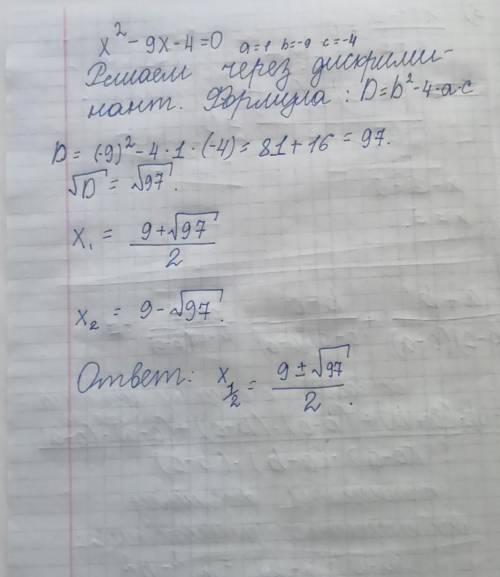 x² - 9x - 4 = 0 a = 1 b = -9 c = -4
Решаем через дискрими-
нант. Формула : D = b² - 4·a·c
D = (-9)² - 4 · 1 · (-4) = 81 + 16 = 97.
√D = √97.
x₁ = (9 + √97) / 2
x₂ = 9 - √97.
Ответ: x₁/₂ = (9 ± √97) / 2.